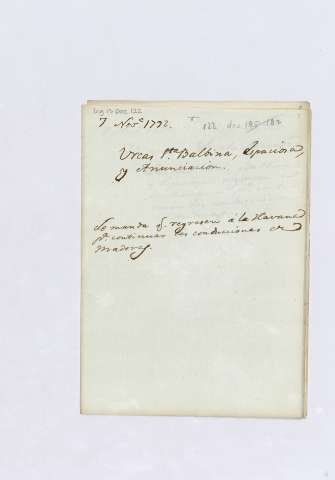 Leg 13 Doc. 122
7 Nov.e 1772.
122 doc 182
Urcas S.ta Balbina, Spaciosa,
y Anunciacion.
Se manda q.e regresen â la Havana
p.a continuar las conducciones de
Maderas.